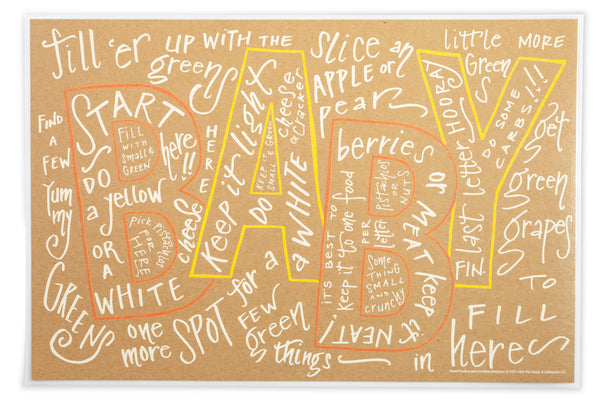 fill 'er UP WITH THE greens
slice an APPLE or pear
little MORE Greens
FIND A FEW Yummy GREENS
one more SPOT for a FEW green things
in here
get green grapes TO FILL
BABY
START here!!
FILL WITH SMALL & GREEN
DO a yellow OR A WHITE
PICK PISTACHIOS FOR HERE
cheese HERE
Keep it light
KEEP IT GREEN SMALL &
DO a WHITE
cheese or cracker
berries or MEAT keep it NEAT!
IT'S BEST TO keep it to one food PER letter
PISTACHIOS OR NUTS
Some THING SMALL AND crunchy
last letter HOORAY
DO SOME CARBS!!!
FIN.